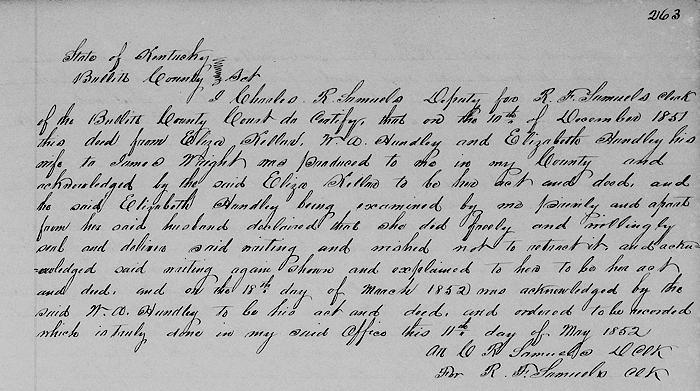 263
State of Kentucky
Bullitt County Sct
I Charles R. Samuels Deputy for R. F. Samuels clerk
of the Bullitt County Court do Certify, that on the 10th of December 1851
this deed from Eliza Kellar, W. A. Hundley and Elizabeth Hundley his
wife to James Wright was produced to me in my County and
acknowledged by the said Eliza Kellar to be her act and deed, and
he said Elizabeth Hundley being examined by me privily and apart
from her said husband declaired that she did freely and willingly
seal and deliver said writing and wished not to retract it and ackn
owledged said writing again shown and explained to her to be her act
and deed, and on the 18th day of March 1852 was acknowledged by the
said W. A. Hundley to be his act and deed, and ordered to be recorded
which is truly done in my said Office this 11th day of May 1852
C R Samuels D Clk
For R. F. Samuels Clk